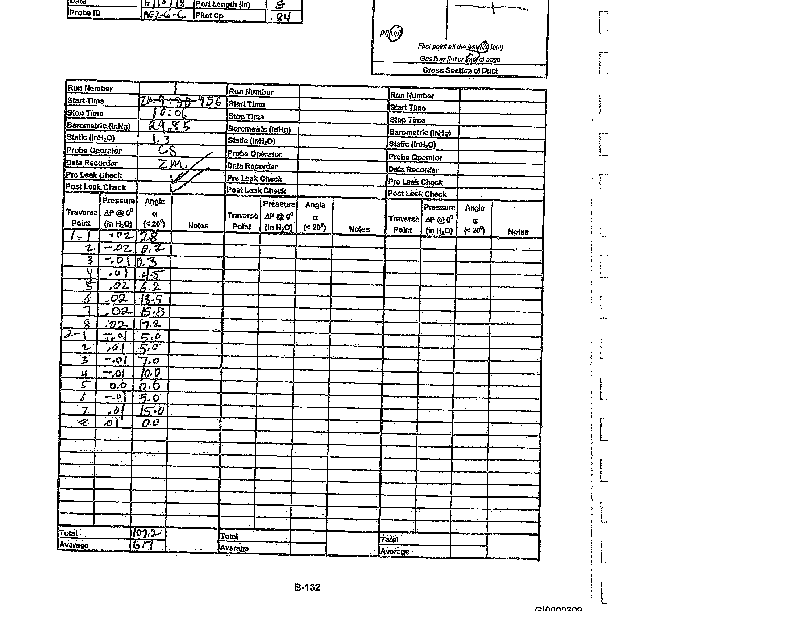 Date Port Length (in) 8
Probe ID Pitot Cp .84
Cross Section of Duct
Run Number 1 Run Number Run Number
Start Time 956 Start Time Start Time
Stop Time 10:06 Stop Time Stop Time
Barometric (InHg) 29.85 Barometric (InHg) Barometric (InHg)
Static (InH₂O) 1.3 Static (InH₂O) Static (InH₂O)
Probe Operator Probe Operator Probe Operator
Data Recorder ZM. Data Recorder Data Recorder
Pre Leak Check ✓ Pre Leak Check Pre Leak Check
Post Leak Check ✓ Post Leak Check Post Leak Check
Pressure Angle Pressure Angle Pressure Angle
Traverse ΔP @ 0° α Traverse ΔP @ 0° α Traverse ΔP @ 0° α
Point (in H₂O) (< 20°) Notes Point (in H₂O) (< 20°) Notes Point (in H₂O) (< 20°) Notes
1-1
2 -.02
3 -.01 0.3
4 .01 4.5
5 .02 6.2
6 .02 13.5
7 .02
8 .02
2-1 -.01 5.0
2 .01 5.0
3 -.01 7.0
4 -.01 10.0
5 0.0 0.0
6 -.01 5.0
7 .01 15.0
8 .01 0.0
Total 107.2 Total Total
Average 6.7 Average Average
B-132